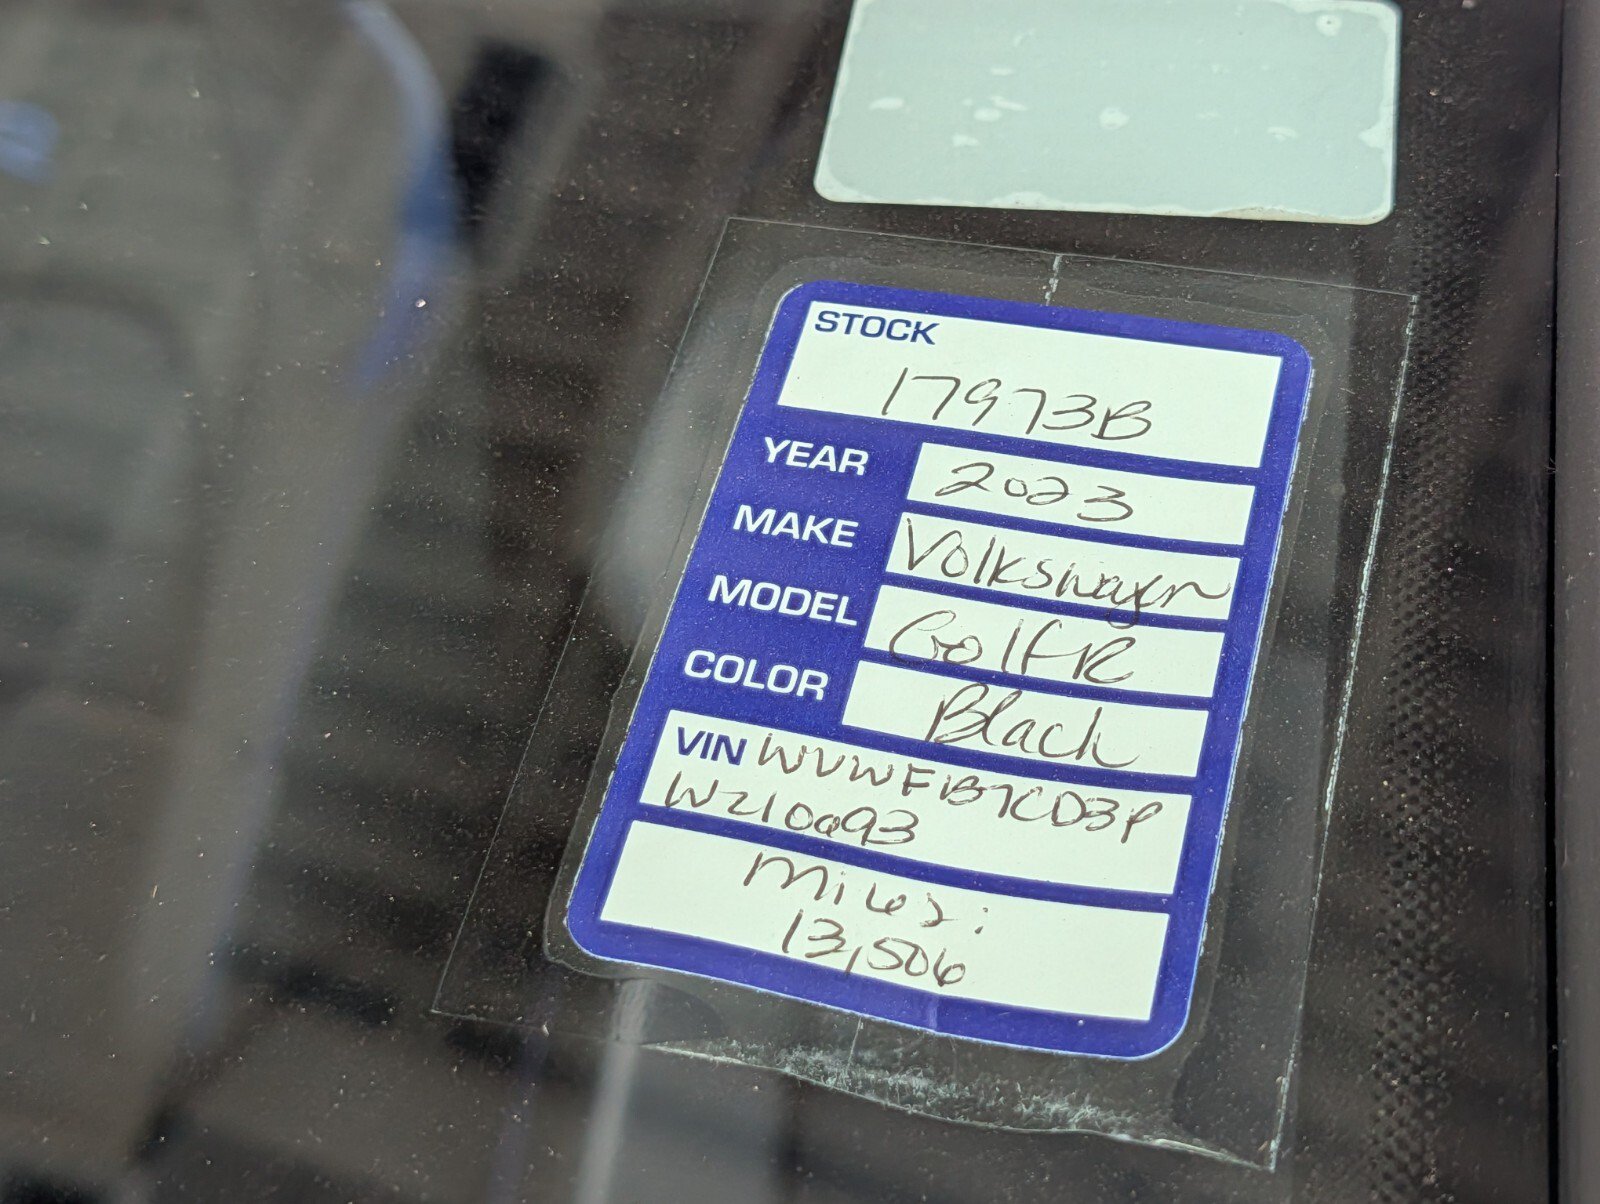 STOCK
17973B
YEAR 2023
MAKE Volkswagen
MODEL Golf R
COLOR Black
VIN WVWFB7CD3P
W210093
Miles:
13,506